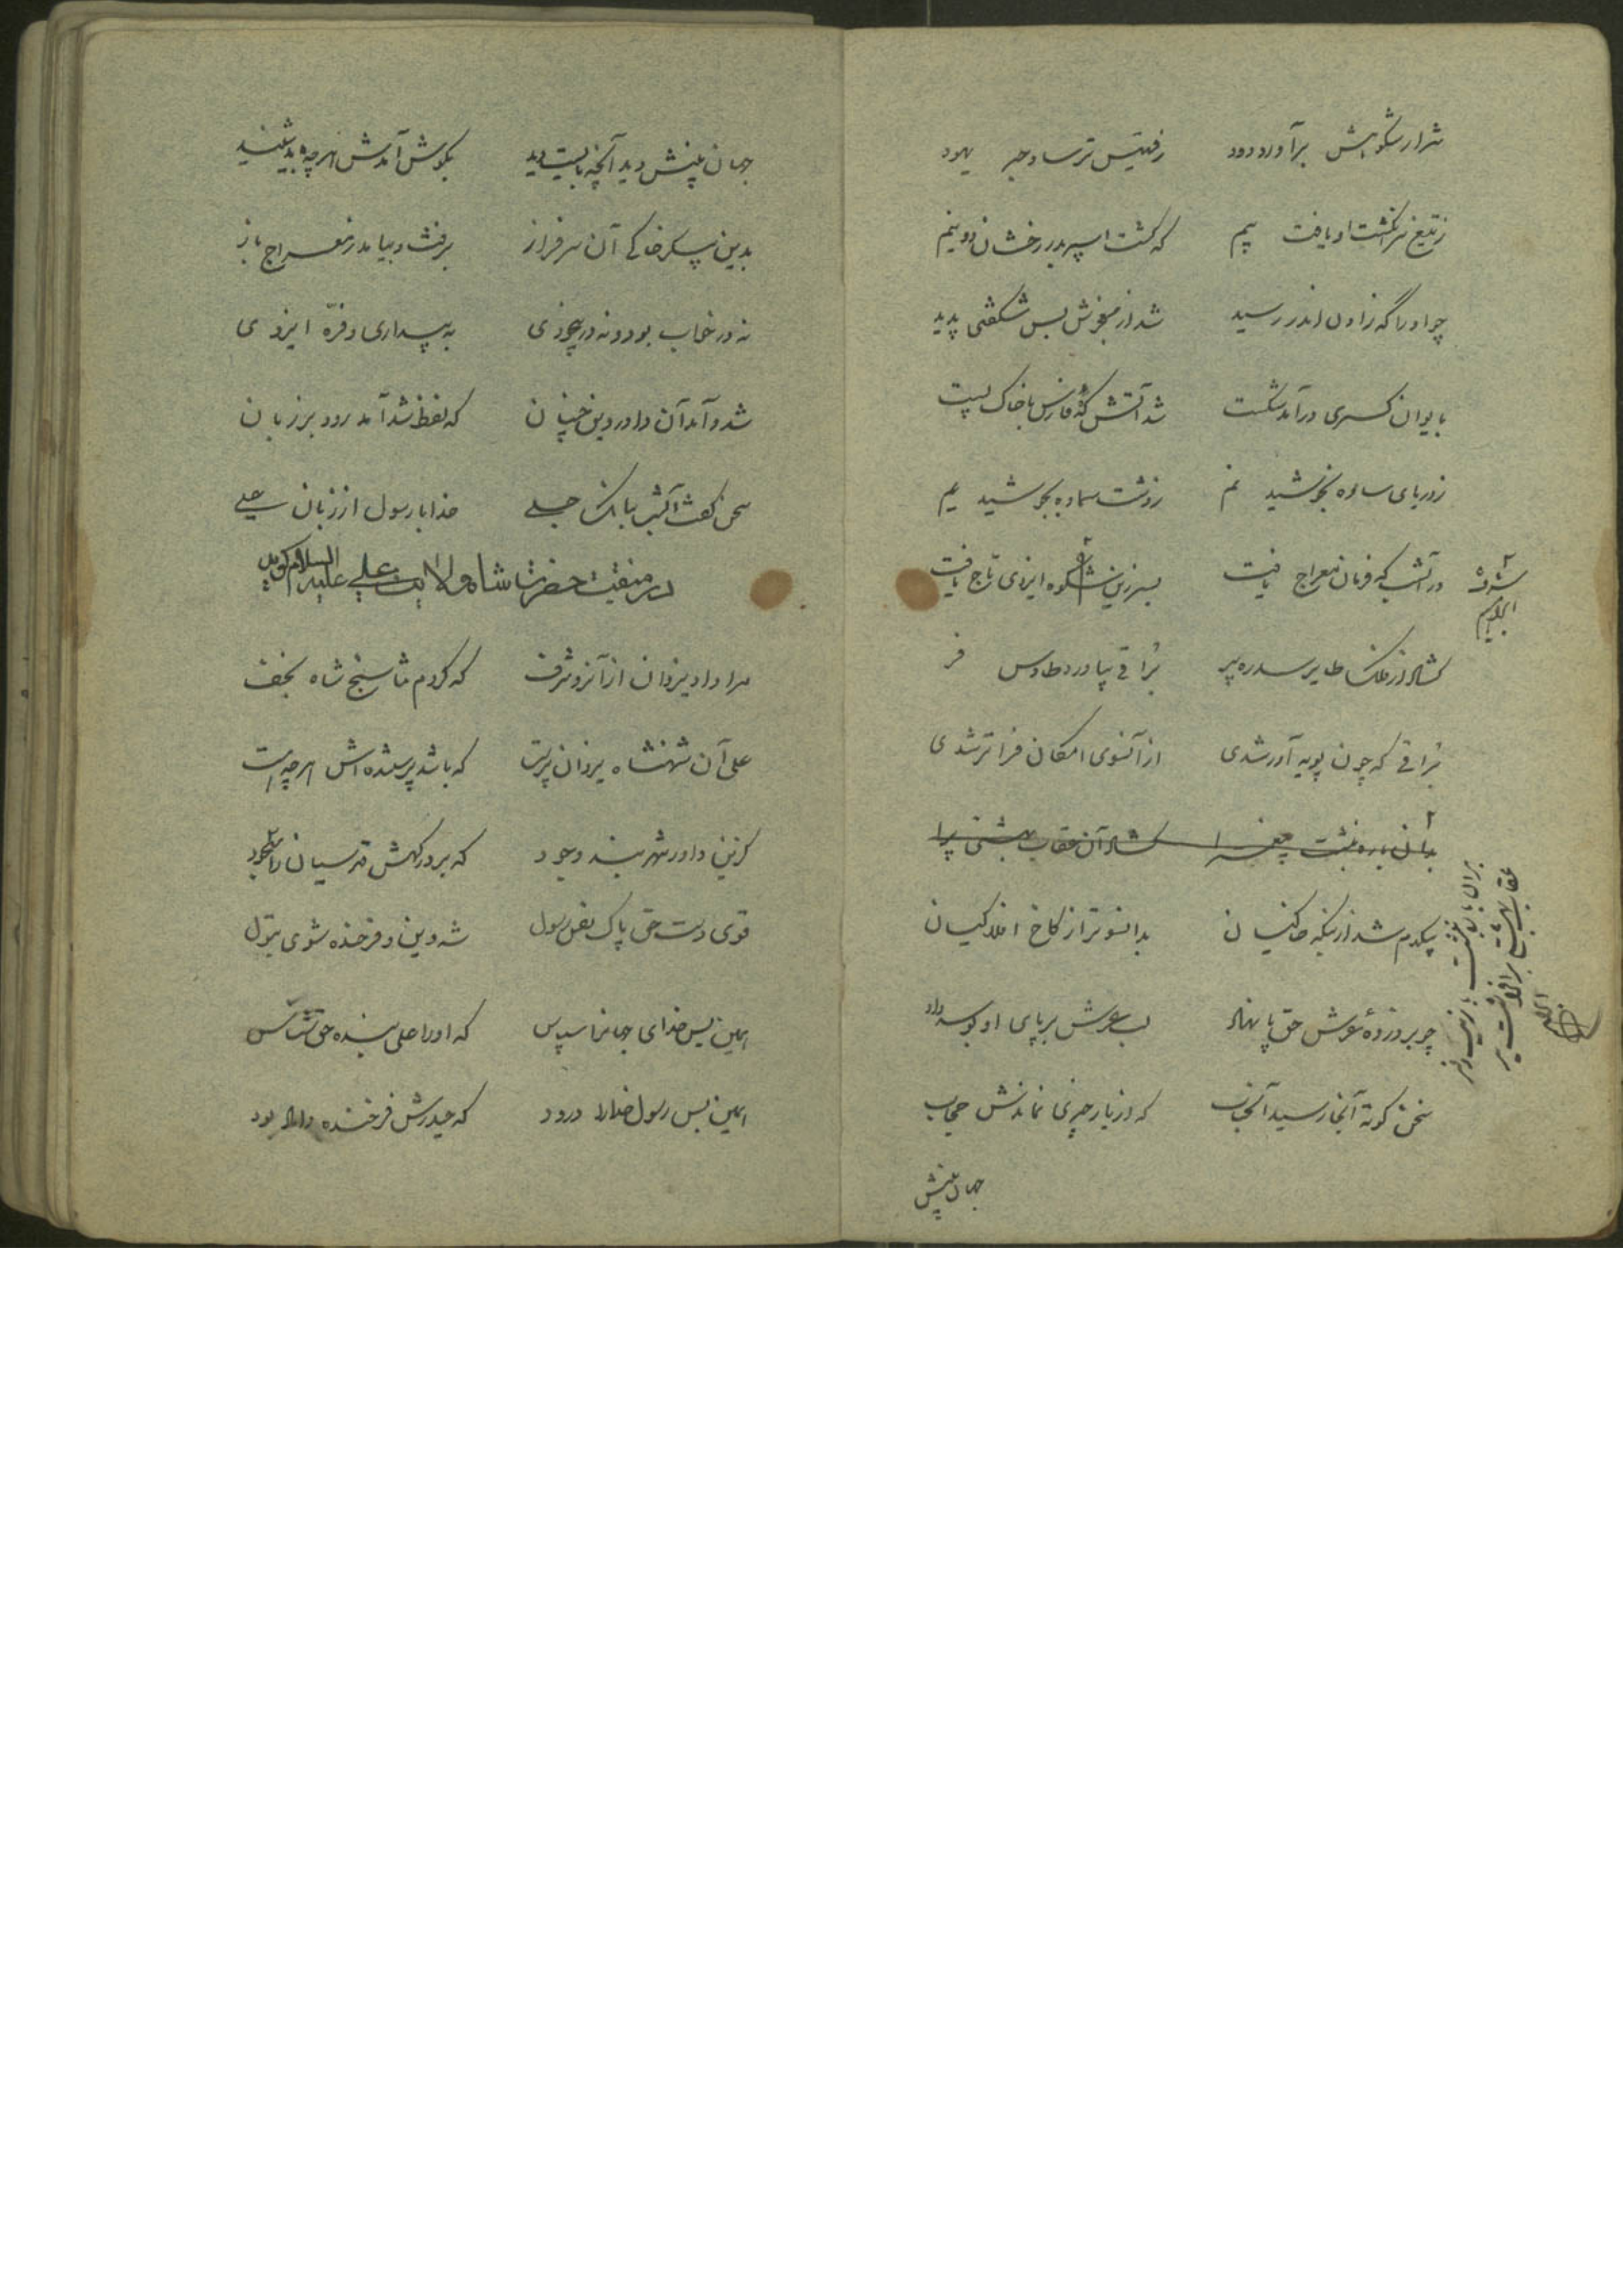 شرار شکوهش برآورد دود ز قسیس ترسا و حبر یهود
ز تیغ سر انگشت او یافت بیم که گشت اسپر بدر رخشان دو نیم
چو او را گه زادن اندر رسید شد از مغزش بس شگفتی پدید
بایوان کسری درآمد شکست شد آتشکده فارس با خاک پست
ز دریای ساوه بخوشید نم ز دشت سماوه بجوشید یم
در آنشب که فرمان معراج یافت بسر زین شکوه ایزدی تاج یافت
گشاد از فلک طایر سدره پر براقی بیاورد طاوس فر
براقی که چون پویه آور شدی از آنسوی امکان فراتر شدی
بدان باره بنشست پیغمبرا گشاد آن عقاب بهشتی پرا
بیکدم شد از تیکه خاکیان بدانسوتر از کاخ افلاکیان
چو بر دزدهٔ عرش حق پا نهاد لب عرش بر پای او بوسه داد
سخن کوته آنجا رسید آنجناب که از یار چیزی نماندش حجاب
جهان بینش
جهان بینش دید آنچه بایست دید بگوش آمدش هر چه باید شنید
بدین پیکر خاکی آن سرفراز برفت و بیامد ز معراج باز
نه در خواب بود و نه در بیخودی به بیداری و فرّه ایزدی
شد و آمد آن داور دین چنان که لفظ شد آمد رود بر زبان
سخن گفت آنشب ببانگ جلی خدا با رسول از زبان علی
در منقبت حضرت شاه ولایت علی علیه السلام گوید
مرا داد یزدان از آنرو شرف که کردم ثنا سنج شاه نجف
علی آن شهنشاه یزدان پرست که باشد پرستنده‌اش هر چه هست
گزین داور شهر بند وجود که بر درگهش قدسیان را سجود
قوی دست حق پاک نفس رسول شه دین و فرخنده شوی بتول
همین بس خدای جهانرا سپاس که او را علی بنده حق شناس
همین بس رسول خدا را درود که حیدرش فرخنده داماد بود